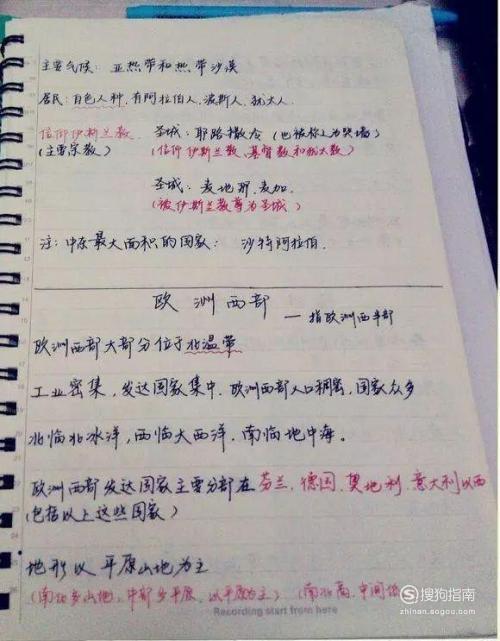 主要气候：亚热带和热带沙漠
居民：白色人种，有阿拉伯人、波斯人、犹太人
信仰伊斯兰教 圣城：耶路撒冷（也被称上为哭墙）
（主要宗教） （信仰伊斯兰教、基督教和犹太教）
圣城：麦地那、麦加．
（被伊斯兰教尊为圣城）
注：中东最大面积的国家： 沙特阿拉伯．
欧洲西部
—指欧洲西半部
欧洲西部大部分位于北温带
工业密集，发达国家集中，欧洲西部人口稠密，国家众多
北临北冰洋，西临大西洋，南临地中海。
欧洲西部发达国家主要分部在芬兰、德国、奥地利、意大利以西
（包括以上这些国家）
地形以平原山地为主
（南北多山地，中部多平原，以平原为主）（南北高，中间低
Recording start from here
搜狗指南
zhinan.sogou.com